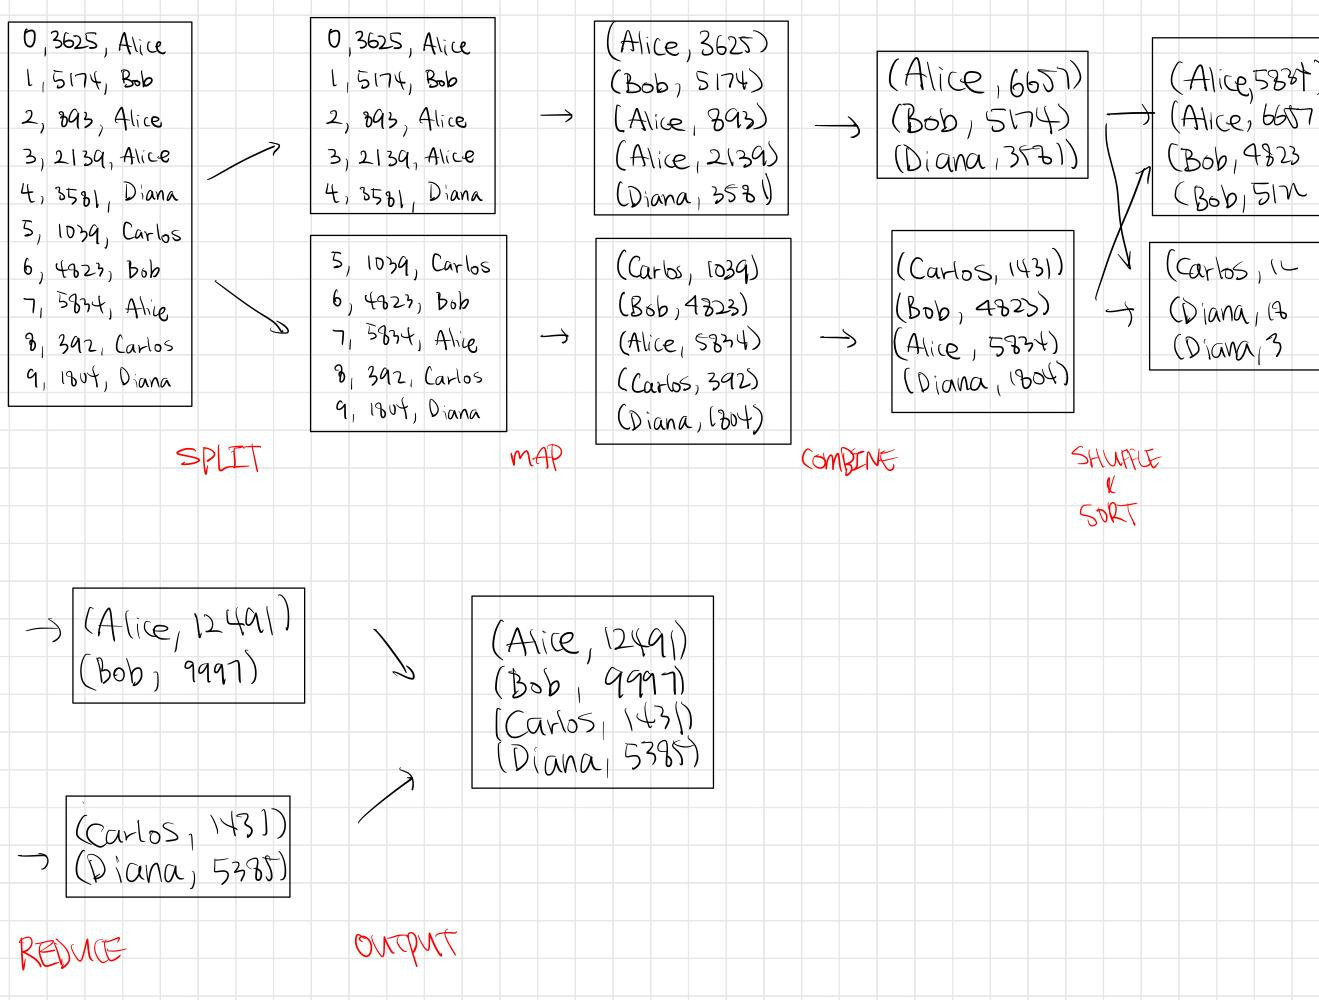 0, 3625, Alice
1, 5174, Bob
2, 893, Alice
3, 2139, Alice
4, 3581, Diana
5, 1039, Carlos
6, 4823, Bob
7, 5834, Alice
8, 392, Carlos
9, 1804, Diana
SPLIT
0, 3625, Alice
1, 5174, Bob
2, 893, Alice
3, 2139, Alice
4, 3581, Diana
5, 1039, Carlos
6, 4823, Bob
7, 5834, Alice
8, 392, Carlos
9, 1804, Diana
MAP
(Alice, 3625)
(Bob, 5174)
(Alice, 893)
(Alice, 2139)
(Diana, 3581)
(Carlos, 1039)
(Bob, 4823)
(Alice, 5834)
(Carlos, 392)
(Diana, 1804)
COMBINE
(Alice, 6657)
(Bob, 5174)
(Diana, 3581)
(Carlos, 1431)
(Bob, 4823)
(Alice, 5834)
(Diana, 1804)
SHUFFLE
&
SORT
(Alice, 5834)
(Alice, 6657
(Bob, 4823
(Bob,
(Carlos,
(Diana, 18
(Diana, 3
(Alice, 12491)
(Bob, 9997)
(Carlos, 1431)
(Diana, 5385)
REDUCE
(Alice, 12491)
(Bob, 9997)
(Carlos, 1431)
(Diana, 5385)
OUTPUT